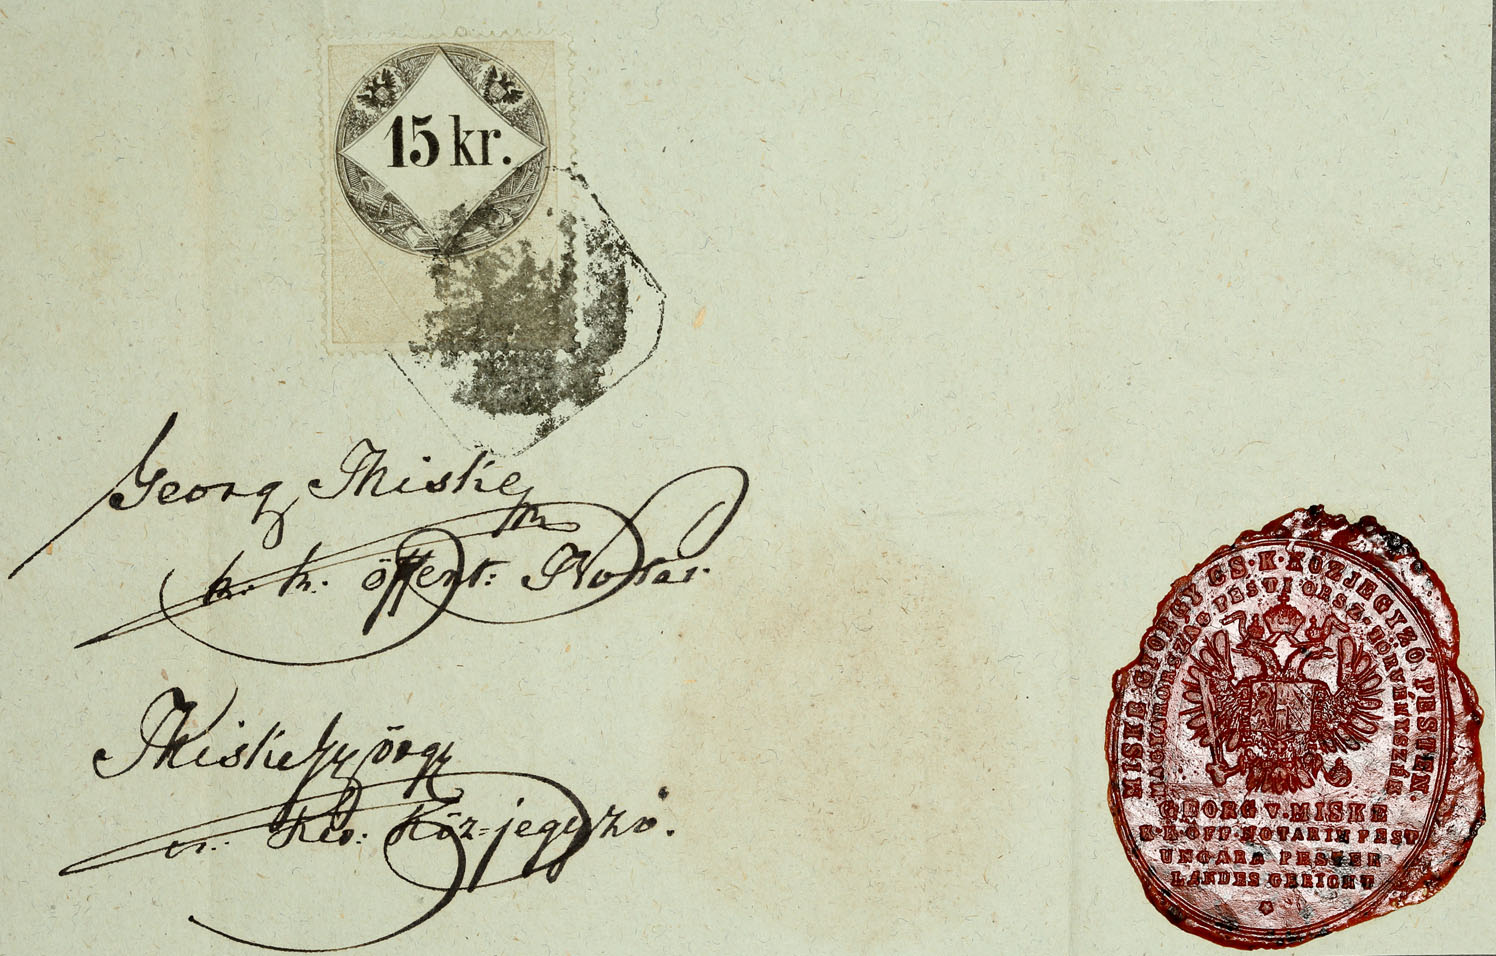 15 kr.
Georg Miske
k. k. öffent: Notar.
Miske György
Köz=jegyző.
MISKE GIORGY CS. K. KÖZJEGYZÖ. PESTEN.
MAGYARORSZAG PESTI ORSZ. TÖRVÉNYSZÉK
GEORG V. MISKE
K. K. OFF. NOTAR IN PEST
UNGARN PESTER
LANDES GERICHT